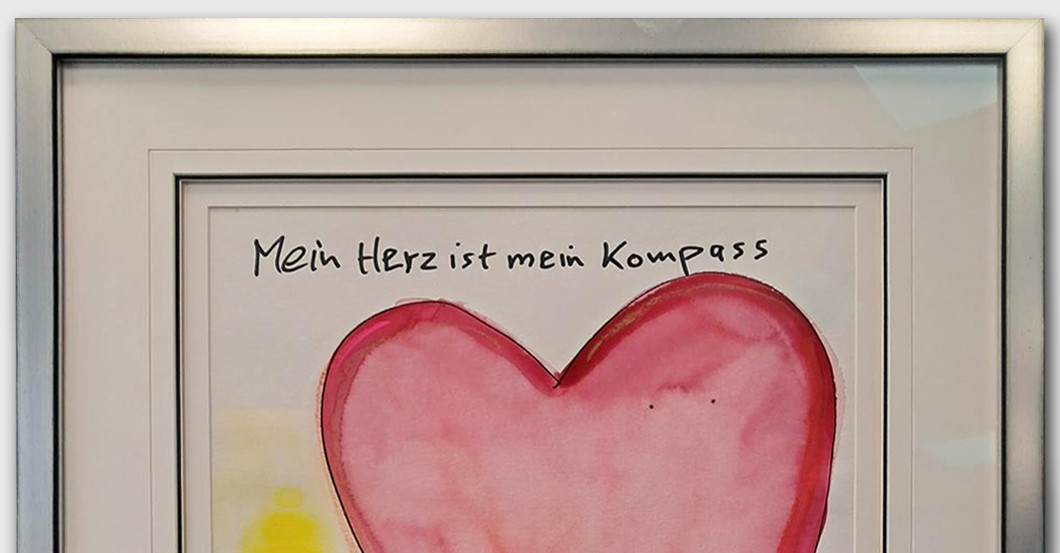 Mein Herz ist mein Kompass